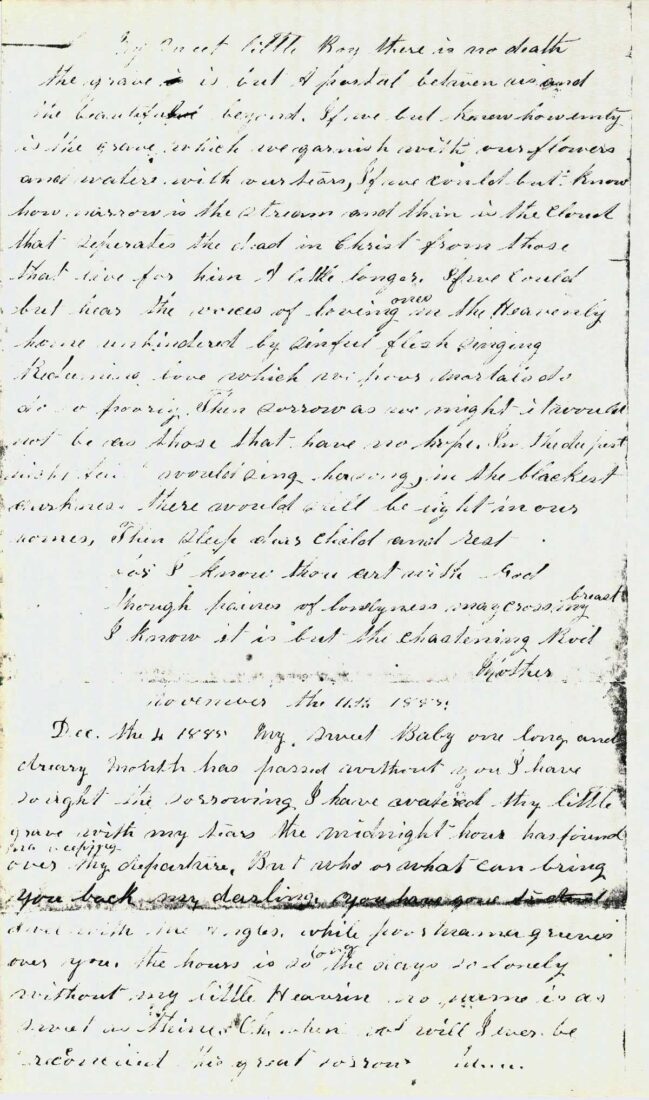 My Sweet little Boy there is no death
the grave is is but A portal between us and
the beautiful beyond. If we but knew how emty
is the grave which we garnish with our flowers
and waters with our tears, If we could but know
how narrow is the stream and thin is the cloud
that seperates the dead in Christ from those
that live for him A little longer. If we could
but hear the voices of loving ones in the Heavenly
home unhindered by sinful flesh singing
Redeeming love which we poor mortals do
so poorly. Then sorrow as we might it would
not be as those that have no hope. In the deepest
would sing, in the blackest
darkness there would still be light in our
homes, Then sleep dear child and rest
for I know thou art with God
though paines of lonlyness may cross my breast
I know it is but the chastening Rod
Mother
November the 1888
Dec. the 4 1888 My sweet Baby one long and
dreary Month has passed without you I have
sought the sorrowing I have watered thy little
grave with my tears the midnight hour has found
me weeping
over thy departure. But who or what can bring
you back my darling. you have gone to
dwell with the angles. while poor mama grieves
over you. the hours is so long the days so lonely
without my little no name is as
sweet as thine. Oh when will I ever be
reconciled this great sorrow